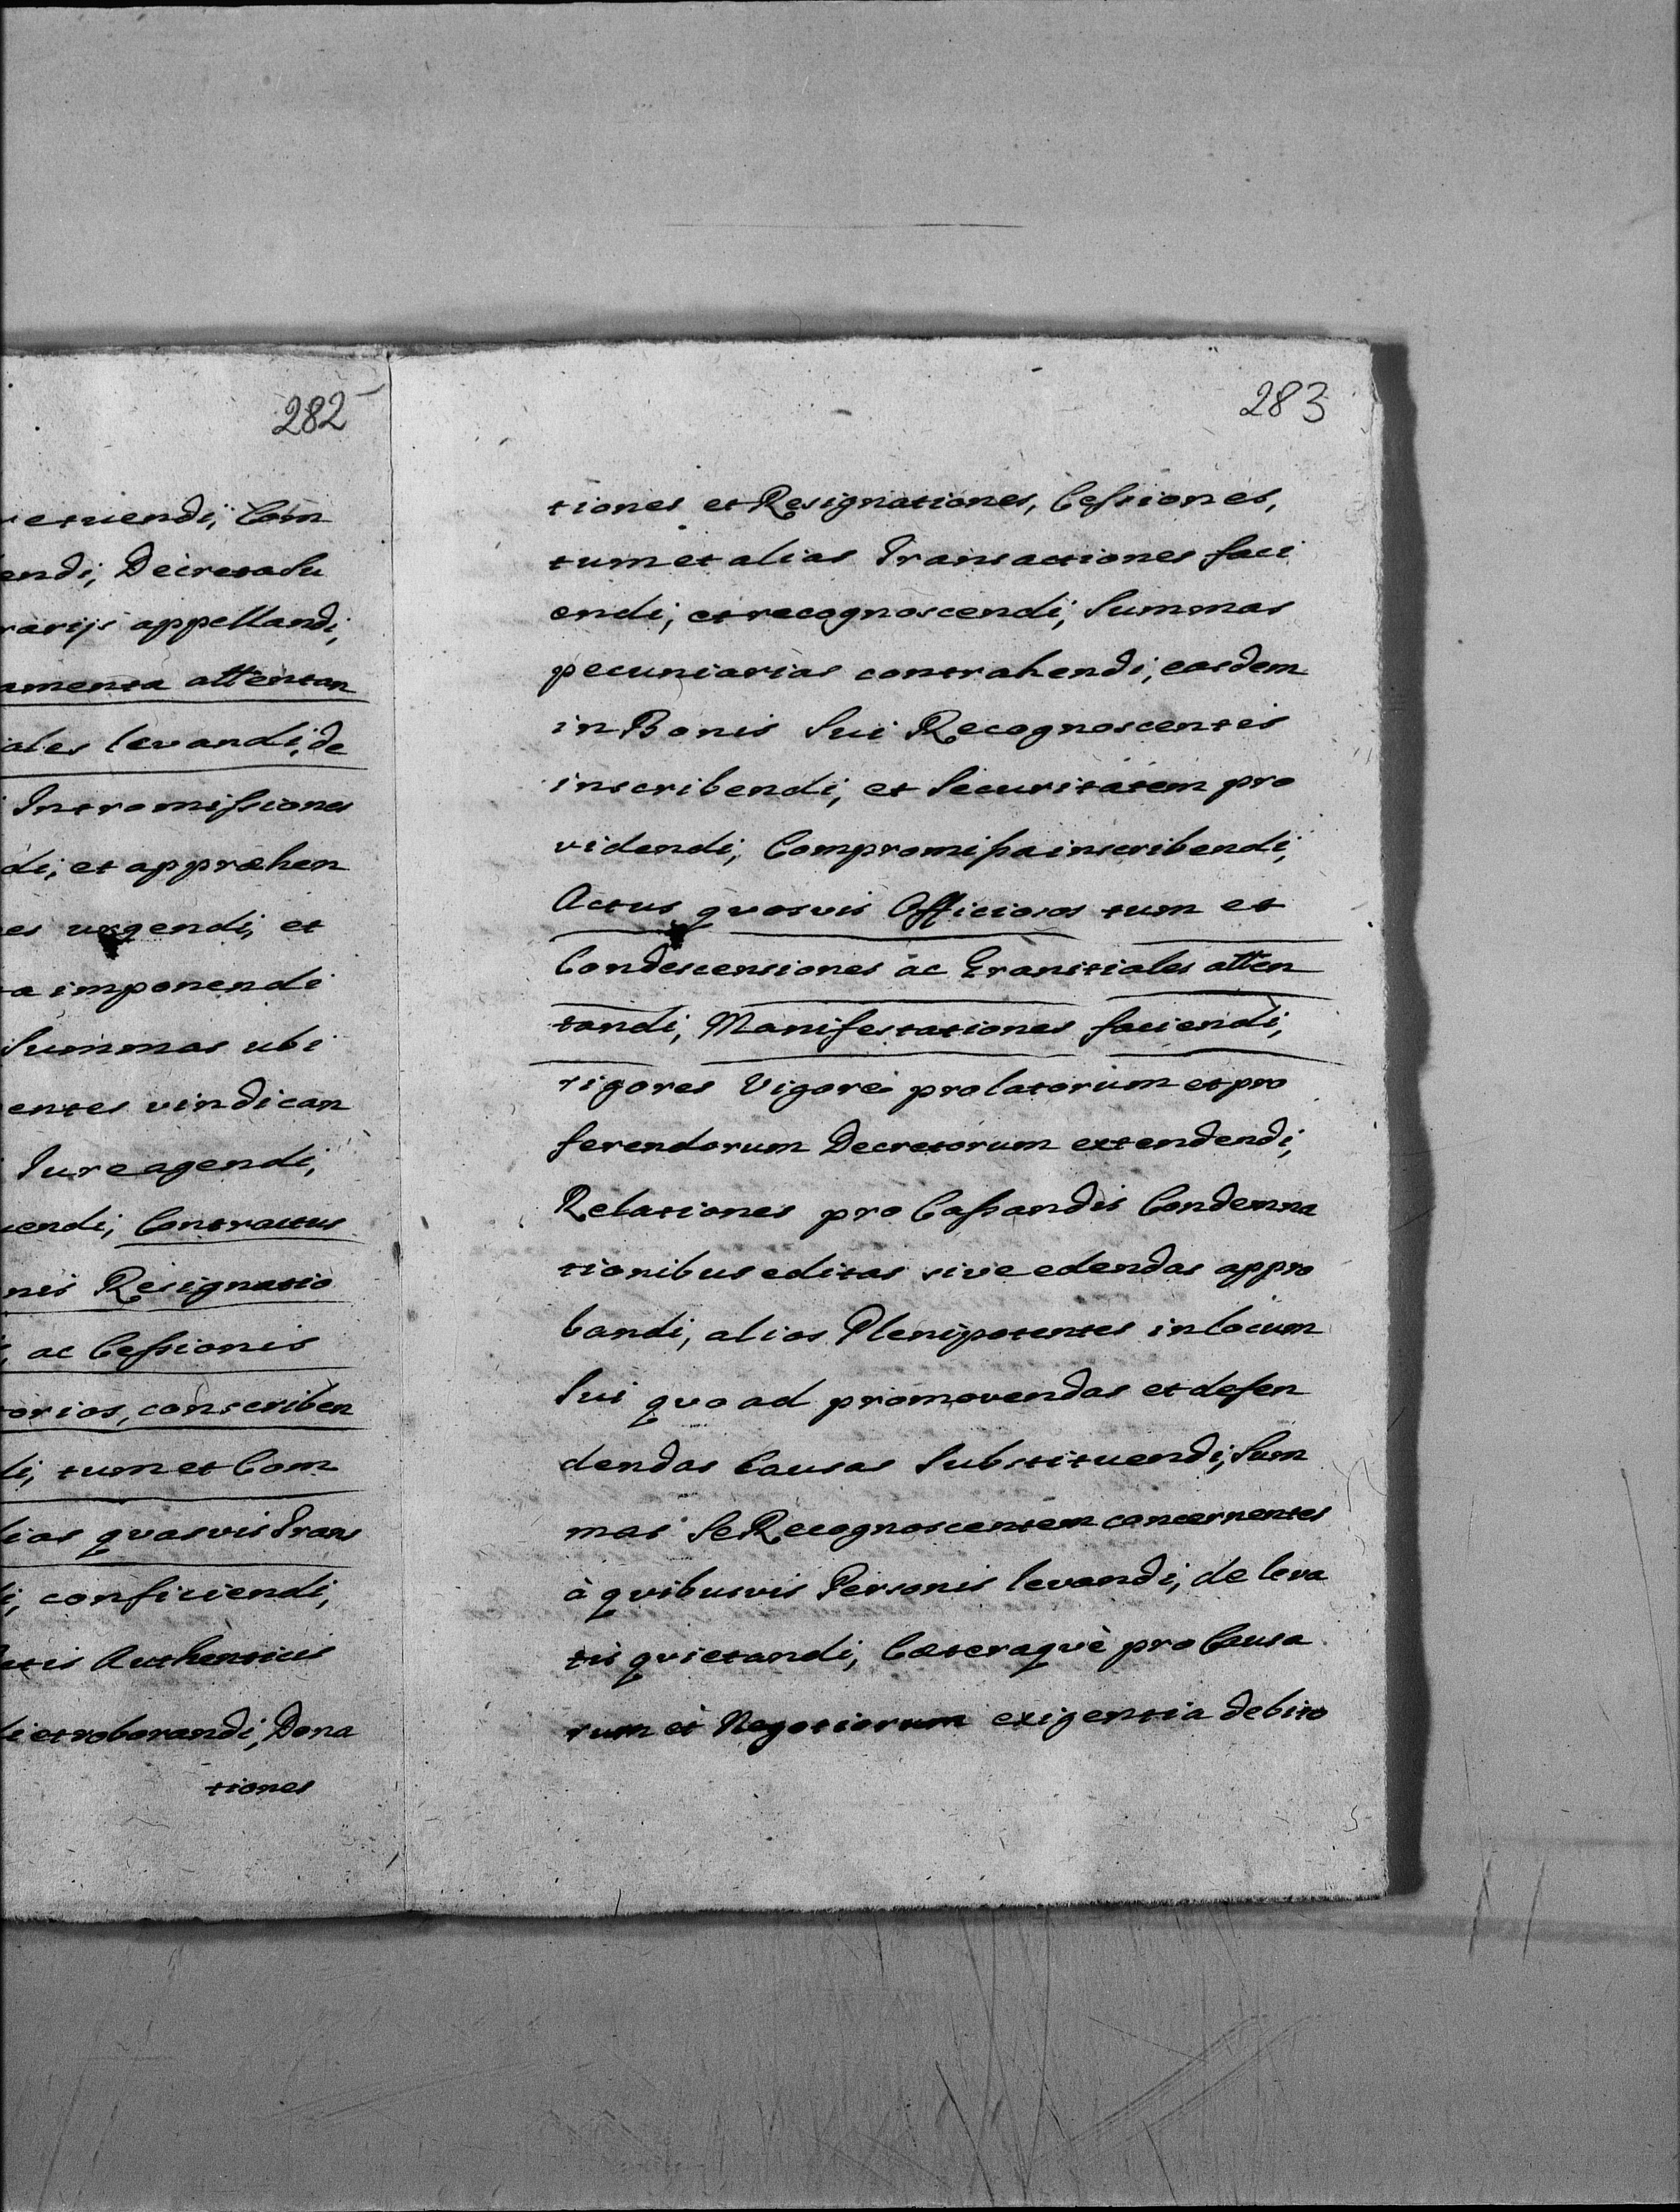 282
etuendi, Com
endi, Decreta Su
rarijs appellandi,
amenta attentan
ales levandi, de
Intromissiones
di, et appræhen
es urgendi, et
a imponendi
Summas ubi
entes vindican
Jure agendi,
endi, Contractus
nis Resignatio
ac Cessionis
orios, conscriben
di, tum et Com
lias quasvis Trans
i, conficiendi,
ctis Authenticis
di et roborandi, Dona
tiones
283
tiones et Resignationes, Cessiones,
tum et alias Transactiones faci
endi, et recognoscendi, Summas
pecuniarias contrahendi, easdem
in Bonis Sui Recognoscentis
inscribendi, et Securitatem pro
videndi, Compromissa inscribendi,
Actus quosvis Officiosos tum et
Condescensiones ac Granitiales atten
tandi, Manifestationes faciendi,
rigores Vigore prolatorum et pro
ferendorum Decretorum extendendi,
Relationes pro Cassandis Condemna
tionibus editas sive edendas appro
bandi, alios Plenipotentes in locum
Sui quo ad promovendas et defen
dendas Causas Substituendi, Sum
mas Se Recognoscentem concernentes
à quibusvis Personis levandi, de leva
tis quietandi, Cæteraquè pro Causa
rum et Negotiorum exigentia debito